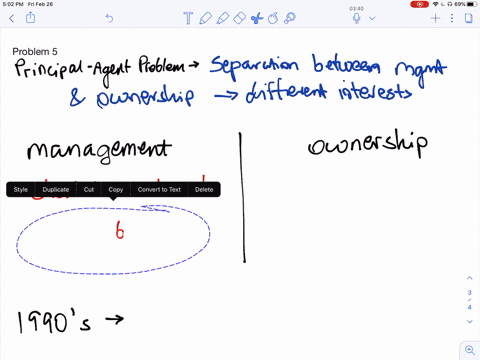 5:02 PM Fri Feb 26
69%
03:40
Problem 5
Principal-Agent Problem → Separation between mgmt
& ownership → different interests
management
ownership
Style Duplicate Cut Copy Convert to Text Delete
6
1990's →
3
4